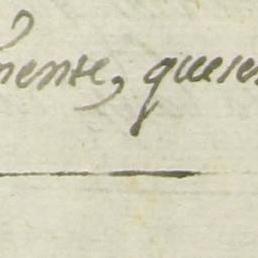 mente, quese